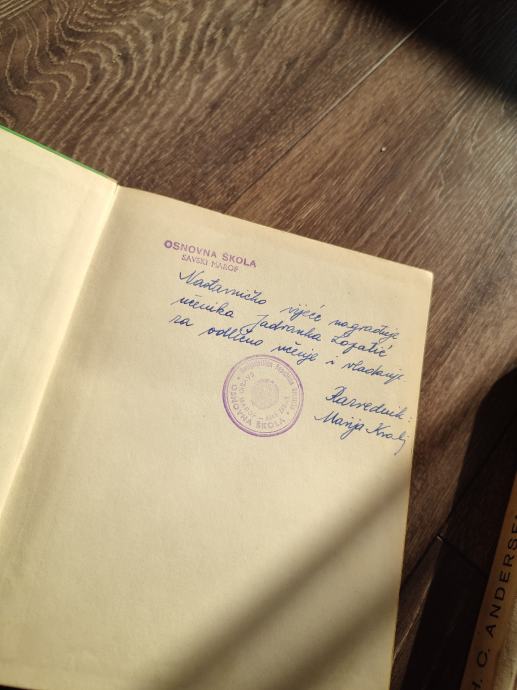 OSNOVNA ŠKOLA
SAVSKI MAROF
Nastavničko vijeće nagrađuje
učenika Jadranka Lopatić
za odlično učenje i vladanje.
Razrednik:
Marija Kralj
OSNOVNA ŠKOLA
H. C. ANDERSEN